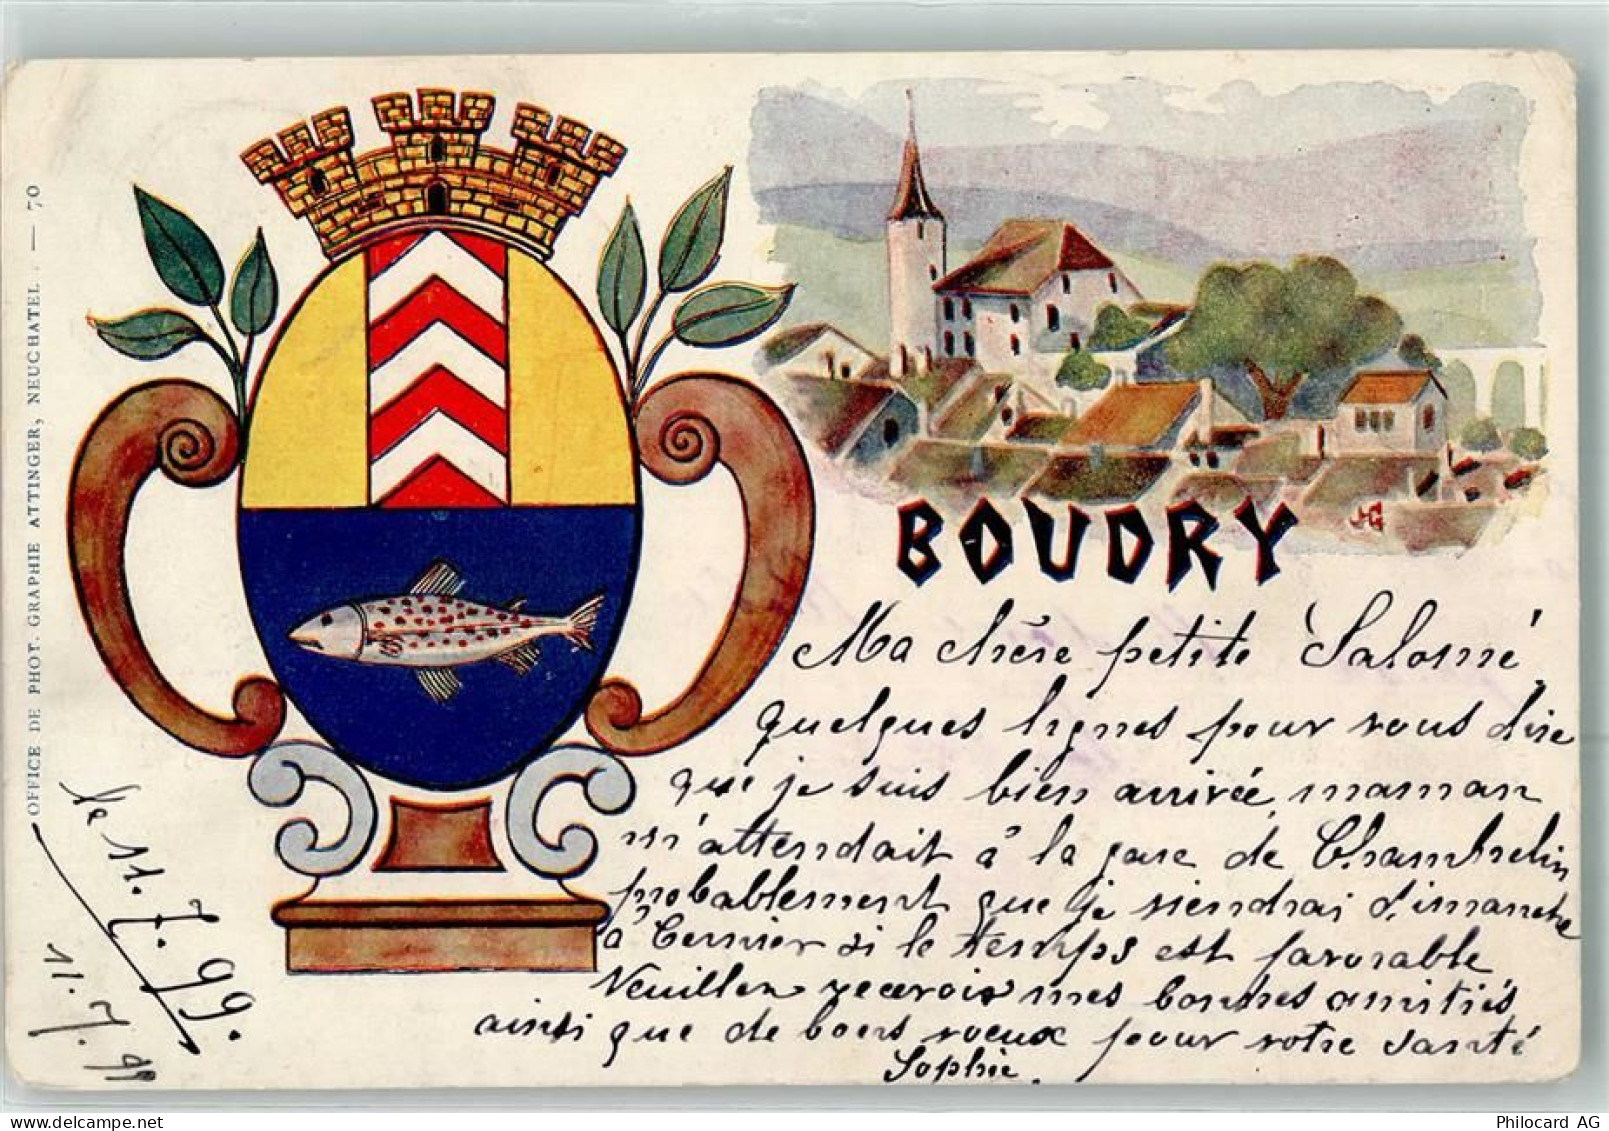 OFFICE DE PHOT. GRAPHIE ATTINGER, NEUCHATEL. — 70
BOUDRY
JG
Ma chère petite Salomé
quelques lignes pour vous dire
que je suis bien arrivée, maman
m'attendait à la gare de Chambrelin
probablement que je viendrai dimanche
à Cernier si le temps est favorable
Veuillez recevoir mes bonnes amitiés
ainsi que de bons voeux pour votre santé
Sophie.
le 11.7.99.
11.7.99
Philocard AG